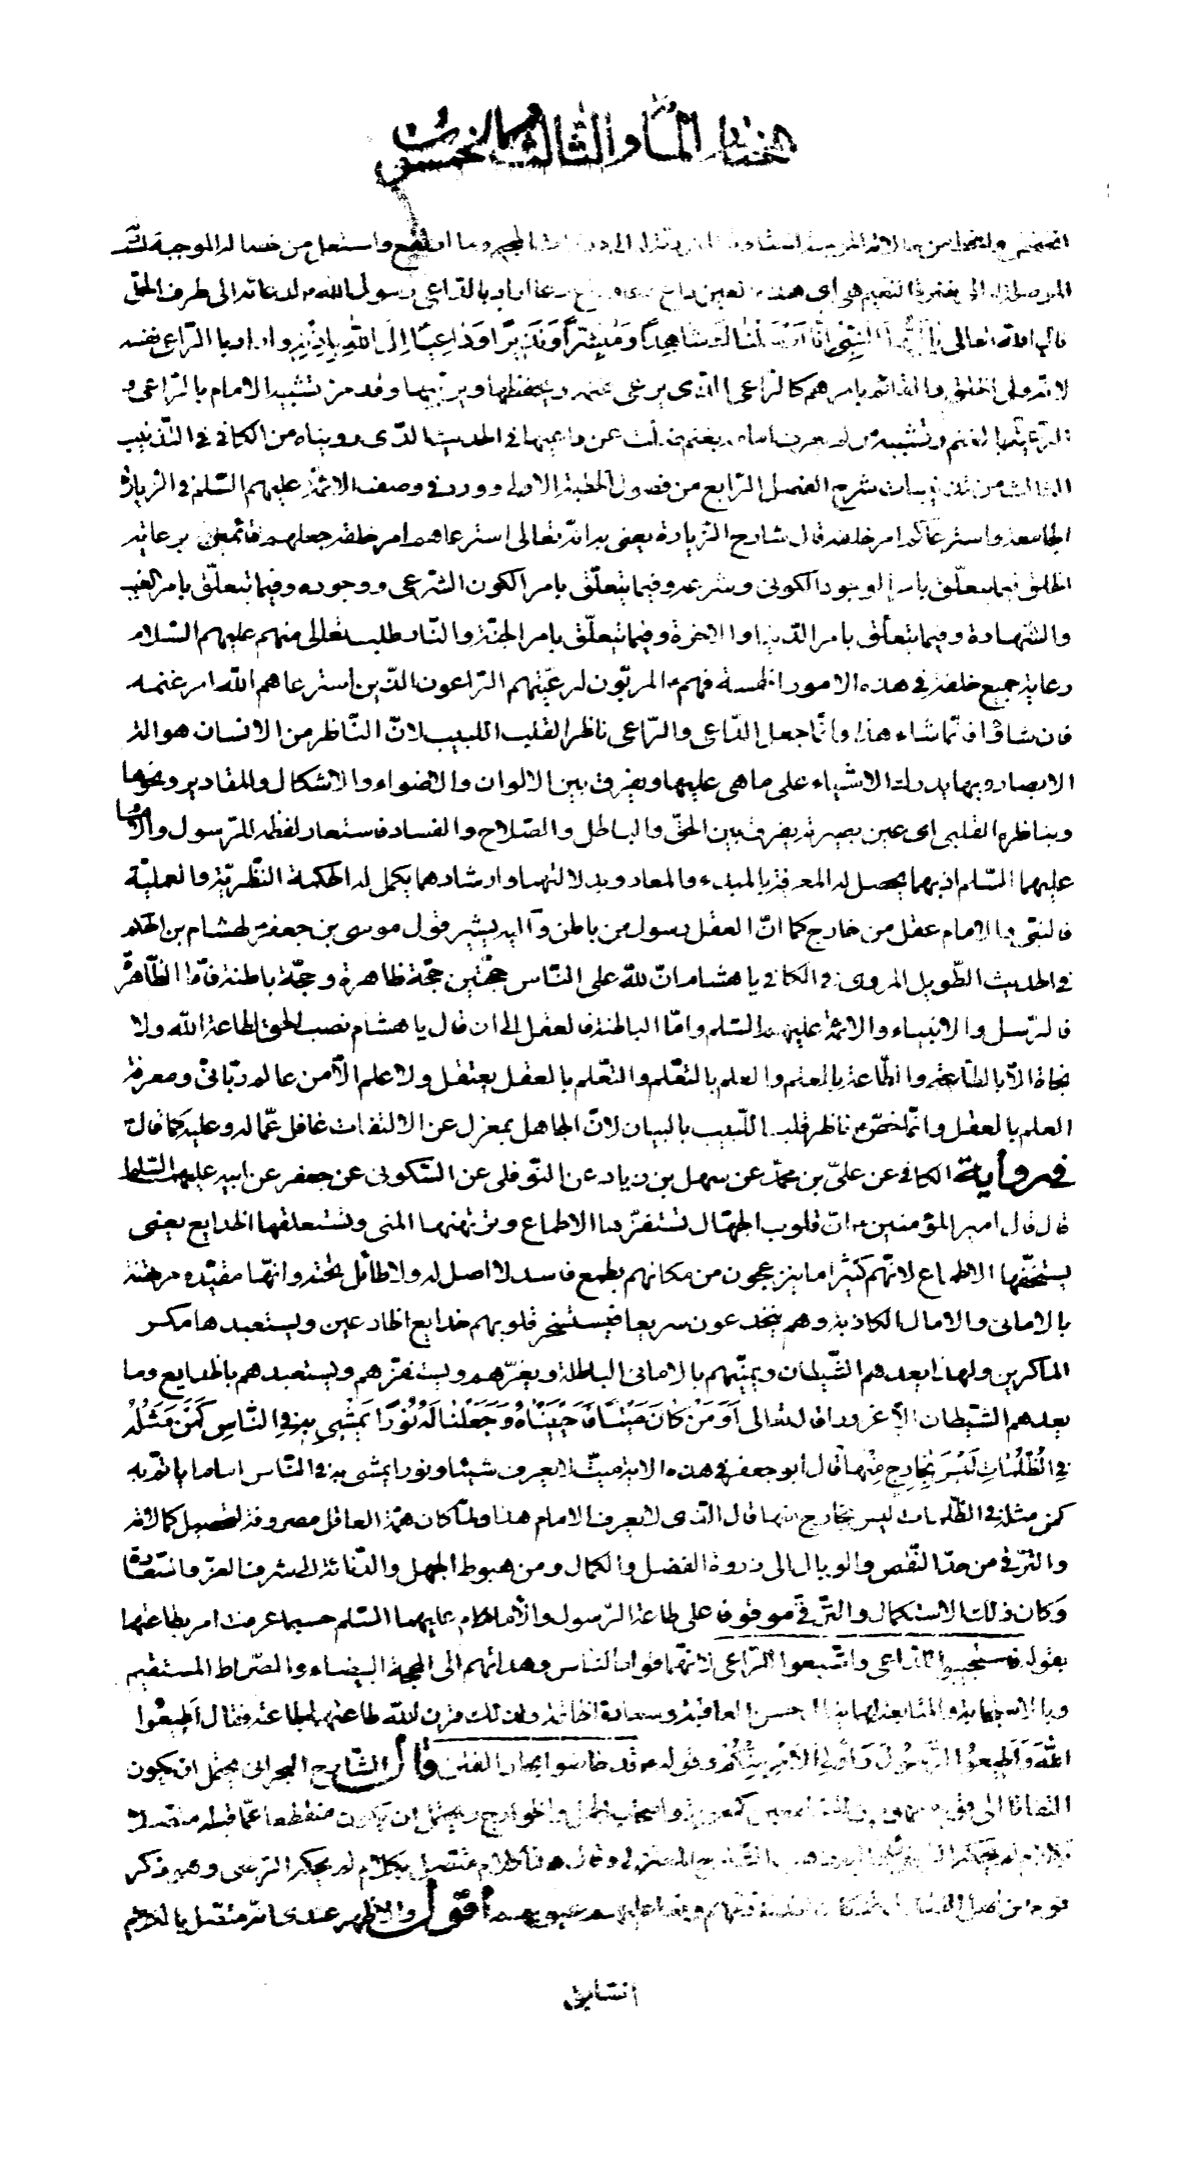 المائة والثالث والخمسون
المجيم وما ارتفع واستعمل من خصاله الموجبة
الموصلة الى هذه داع دعا اراد بالداعي رسول الله لدعائه الى طرف الحق
قال الله تعالى يا أيها النبي إنا أرسلناك شاهدا ومبشرا ونذيرا وداعيا إلى الله بإذنه واراد بالراعي نفسه
لانه ولى الخلق والقائم بامرهم كالراعى الذى يرعى غنمه ويحفظها ويربيها وقد مر تشبيه الامام بالراعى و
الرعية بالغنم وتشبيه من لم يعرف امامه بغنم ضلت عن راعيها في الحديث الذى رويناه من الكافي في التذنيب
الثالث من تذنيبات شرح الفصل الرابع من فصول الخطبة الاولى وورد في وصف الائمة عليهم السلم في الزيارة
الجامعة واسترعاكم امر خلقه قال شارح الزيارة يعنى به انه تعالى استرعاهم امر خلقه جعلهم قائمين برعاية
الخلق فيما يتعلق بامر الوجود الكونى وشرعه وفيما يتعلق بامر الكون الشرعى ووجوده وفيما يتعلق بامر الغيب
والشهادة وفيما يتعلق بامر الدنيا والاخرة وفيما يتعلق بامر الجنة والنار طلب تعالى منهم عليهم السلام
رعاية جميع خلقه في هذه الامور الخمسة فهم المربون لرعيتهم الراعون الذين استرعاهم الله امر غنمه
فان شاؤا فما شاء هذا وانما جعل الداعى والراعى ناظر القلب اللبيب لان الناظر من الانسان هو الة
الابصار وبها يدرك الاشياء على ما هى عليها ويفرق بين الالوان والاضواء والاشكال والمقادير ونحوها
وبناظرة القلب اى عين بصيرة يفرق بين الحق والباطل والصلاح والفساد فاستعار لفظه للرسول والامام
عليهما السلم اذ بهما يحصل له المعرفة بالمبدء والمعاد وبدلالتهما وارشادهما يكمل له الحكمة النظرية والعملية
فالنبى والامام عقل من خارج كما ان العقل رسول من باطن واليه يشير قول موسى بن جعفر لهشام بن الحكم
في الحديث الطويل المروى في الكافي يا هشام ان لله على الناس حجتين حجة ظاهرة وحجة باطنة فاما الظاهرة
فالرسل والانبياء والائمة عليهم السلم واما الباطنة فالعقل الى ان قال يا هشام نصب الحق لطاعة الله ولا
نجاة الا بالطاعة والطاعة بالعلم والعلم بالتعلم والتعلم بالعقل يعتقل ولا علم الا من عالم ربانى ومعرفة
العلم بالعقل وانما خص ناظر قلب اللبيب بالبيان لان الجاهل بمعزل عن الالتفات غافل عما له وعليه كما قال
في رواية الكافي عن على بن محمد عن سهل بن زياد عن النوفلى عن السكونى عن جعفر عن ابيه عليهما السلم
قال قال امير المؤمنين ان قلوب الجهال تستفزها الاطماع وترتهنها المنى وتستعلقها الخدايع يعنى
يستخفها الاطماع لانهم كثيرا ما ينزعجون من مكانهم بطمع فاسد لا اصل له ولا طائل تحته وانها مقيدة مرتهنة
بالامانى والامال الكاذبة وهم ينخدعون سريعا فيستسخر قلوبهم خدايع الخادعين ويستعبدها مكر
الماكرين ولهذا يعدهم الشيطان ويمنيهم بالامانى الباطلة ويغرهم ويستفزهم ويستعبدهم بالخدايع وما
يعدهم الشيطان الا غرورا قال تعالى أومن كان ميتا فأحييناه وجعلنا له نورا يمشي به في الناس كمن مثله
في الظلمات ليس بخارج منها قال أبو جعفر في هذه الاية ميت لا يعرف شيئا ونورا يمشى به في الناس اماما ياتم به
كمن مثله في الظلمات ليس بخارج منها قال الذى لا يعرف الامام هذا ولما كان همة العاقل مصروفة لتحصيل كمالاته
والترقى من حد النقص والوبال الى ذروة الفضل والكمال ومن هبوط الجهل والدنائة الى شرف العز والسعادة
وكان ذلك الاستكمال والترقى موقوفا على طاعة الرسول والامام عليهما السلم حسبما عرفت امر بطاعتهما
بقوله فاستجيبوا للداعى واتبعوا الراعى لانهما قوام الناس وهداتهم الى المحجة البيضاء والصراط المستقيم
وبالاستجابة والمتابعة لهما ينال حسن العاقبة وسعادة الخاتمة ولذلك قرن الله طاعتهما بطاعته فقال أطيعوا
الله وأطيعوا الرسول وأولي الأمر منكم وقوله قد خاضوا بحار الفتن قال الشارح البحرانى يحتمل ان يكون
التفاتا الى كمعوية واصحاب الجمل والخوارج ويحتمل ان يكون منقطعا عما قبله متصلا
بكلام لم يحكه الشارح المعتزلى وقال هذا كلام متصل بكلام لم يحكه الرضى وهو ذكر
قوم من اهل الضلال ذمهم ونعا عليهم عيوبهم أقول والاظهر عندى انه متصل بالكلام
السابق